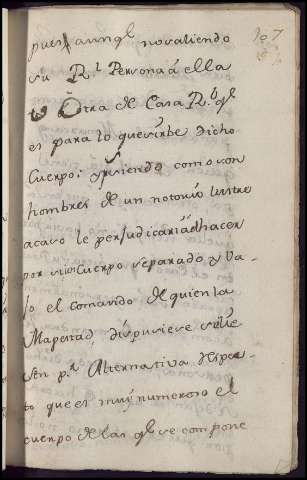 107
pues, aunq.e no valiendo
su R.l Persona á ella
ú Otra de Casa R.l q.e
es para lo que sirbe dicho
Cuerpo; y siendo como son
hombres de un notorio lustre
acaso le perjudicaria el hacer
por si un Cuerpo separado y ba-
jo el comando de quien la
Magestad, dispusiese sirvie
sen p.r Alternativa respec-
to que es muy numeroso el
cuerpo de las q.e se compone